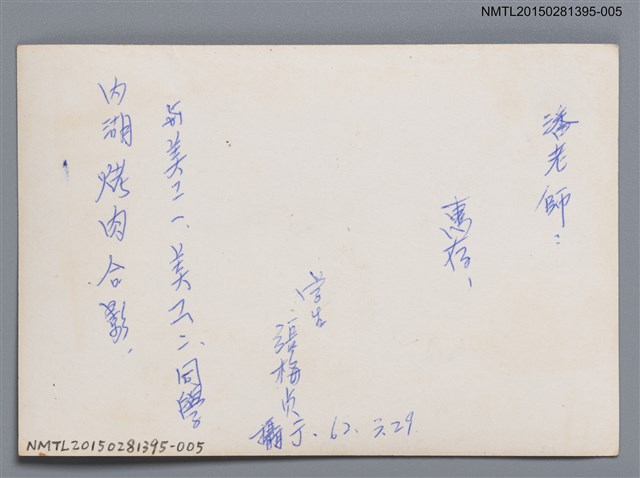 NMTL20150281395-005
潘老師：
惠存，
学生
張梅貞
攝于.62.3.29
与美工一、美工二、同學
內湖烤肉合影.
NMTL20150281395-005